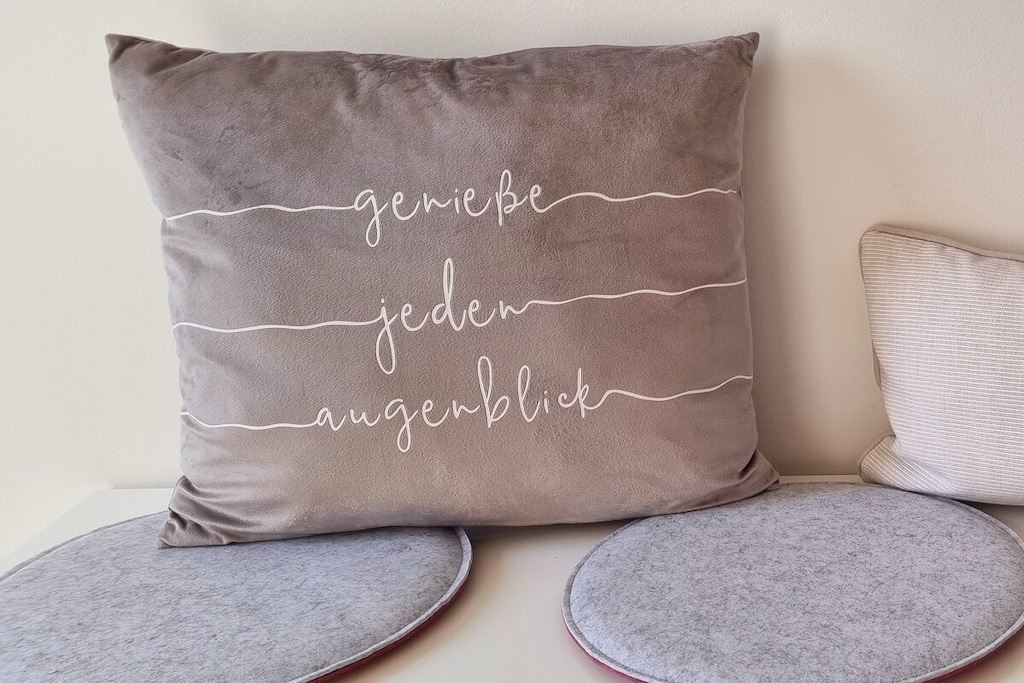 genieße
jeden
augenblick